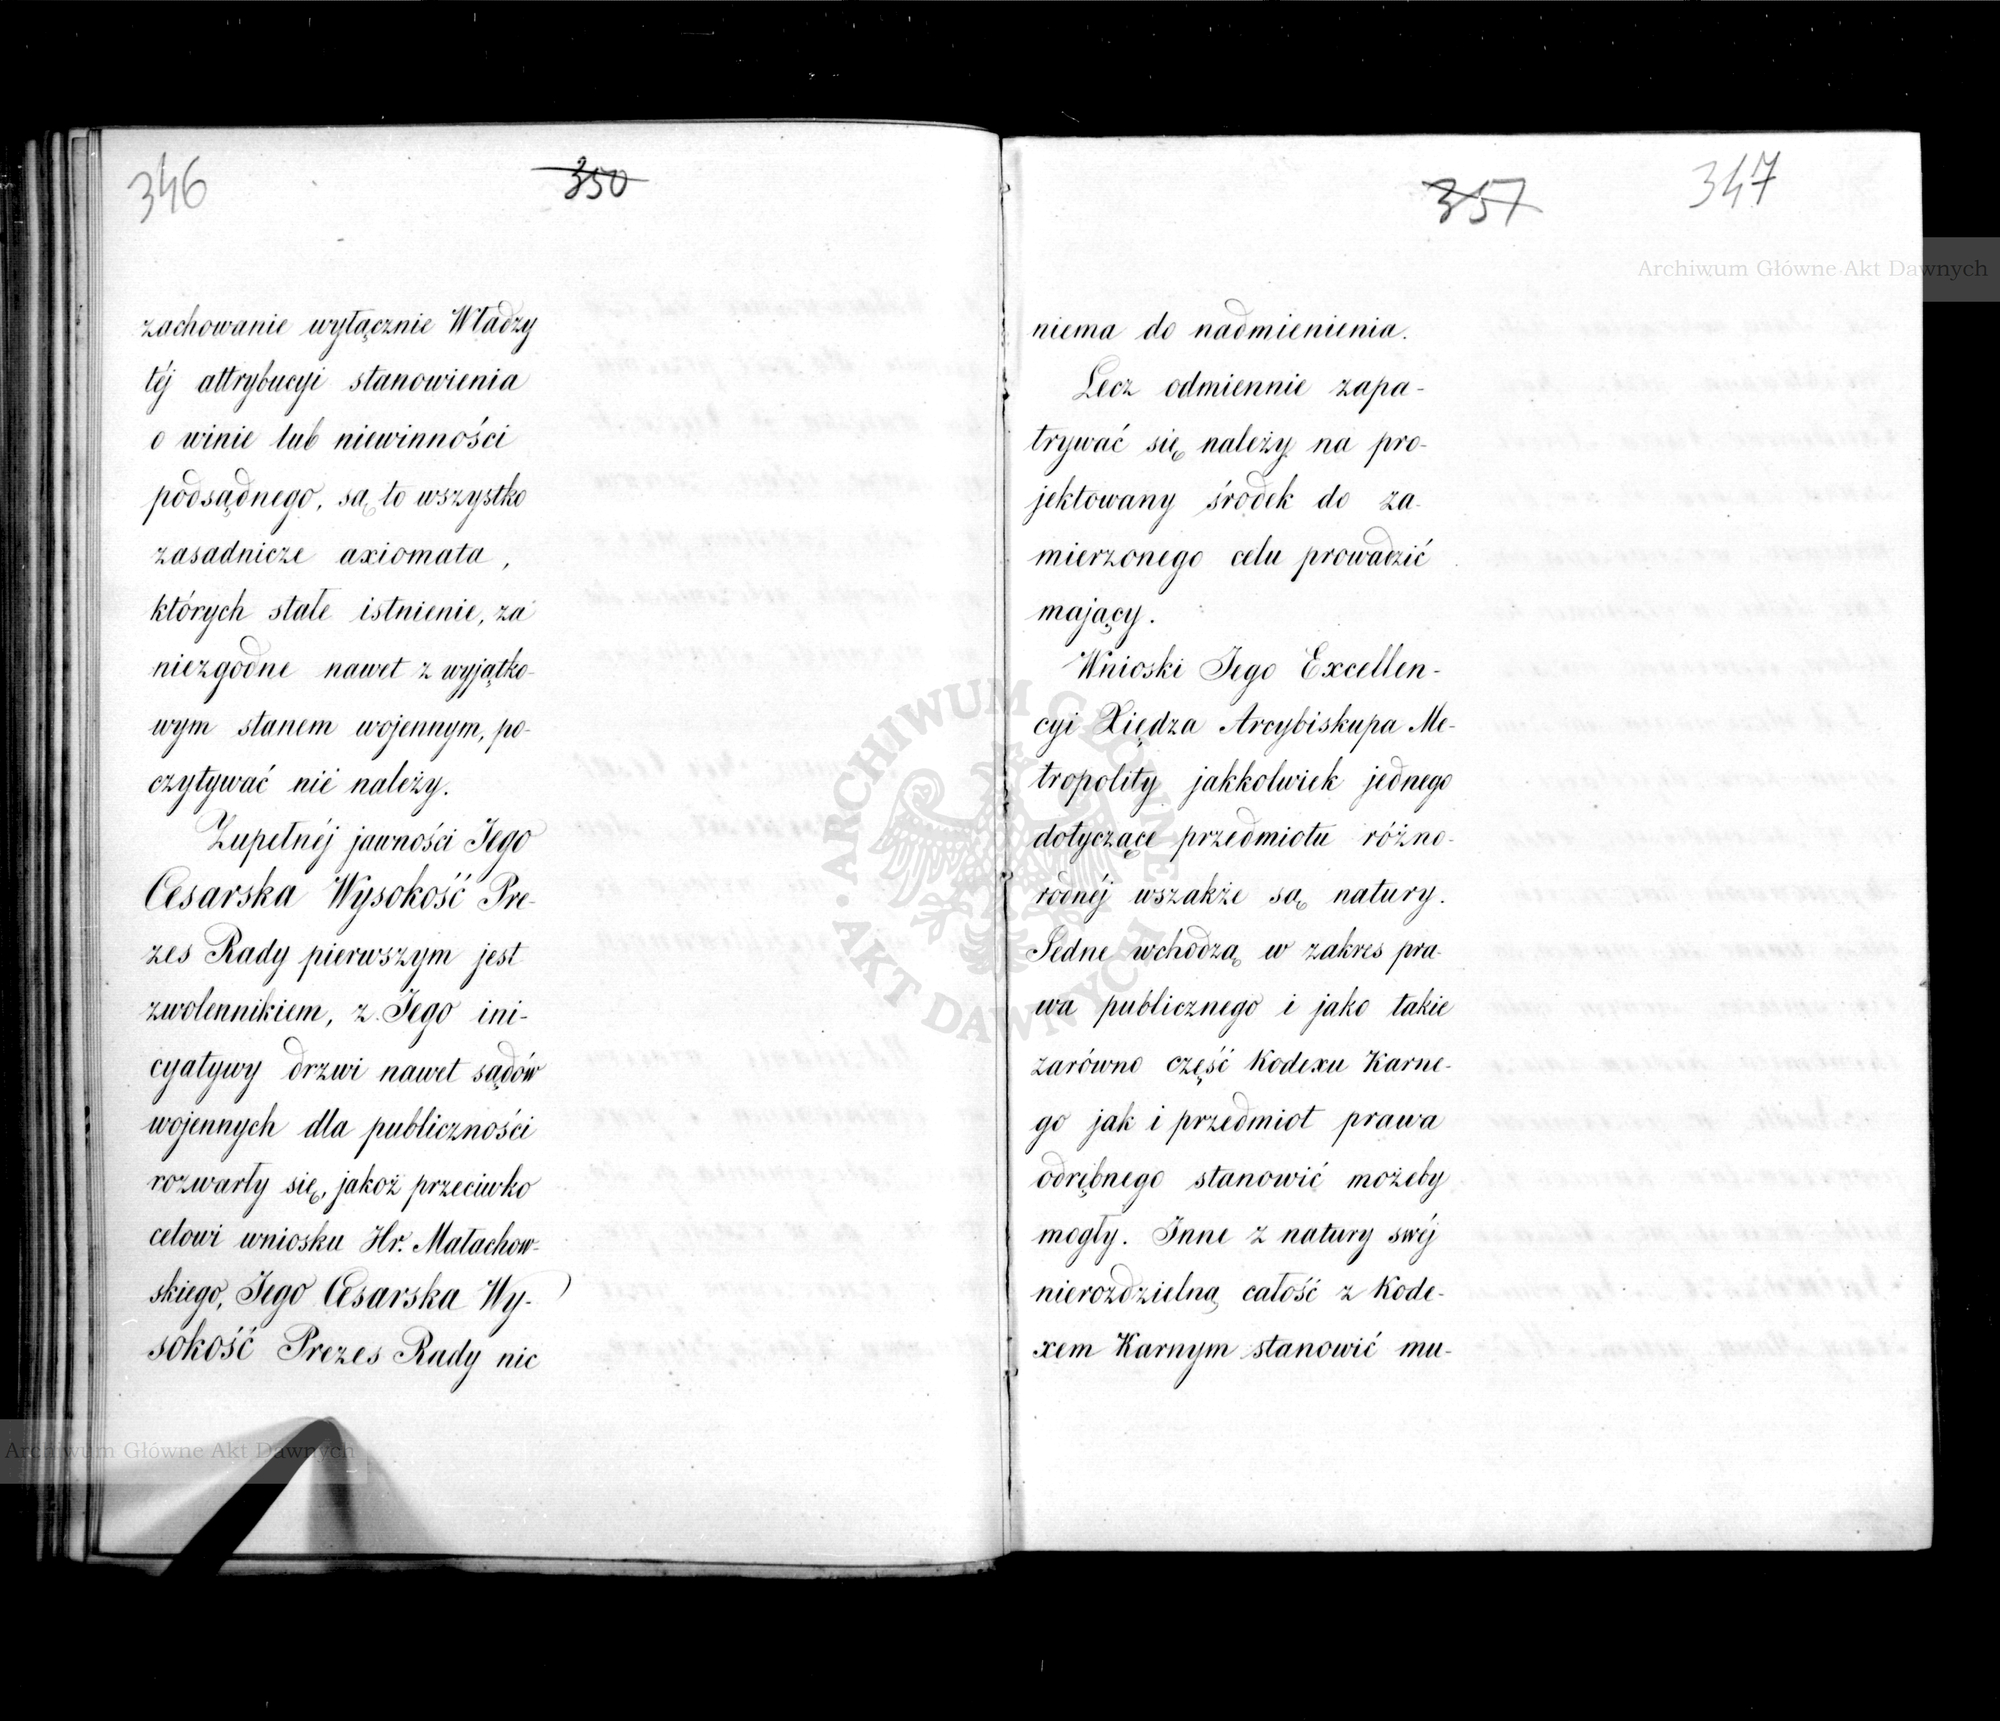 346
350
zachowanie wyłącznie Władzy
téj attrybucyi stanowienia
o winie lub niewinności
podsądnego, są to wszystko
zasadnicze axiomata,
których stałe istnienie, za
niezgodne nawet z wyjątko-
wym stanem wojennym, po-
czytywać nié należy.
Zupełnéj jawności Jego
Cesarska Wysokość Pre-
zes Rady pierwszym jest
zwolennikiem, z Jego ini-
cyatywy drzwi nawet sądów
wojennych dla publiczności
rozwarły się, jakoż przeciwko
celowi wniosku Hr. Małachow-
skiego, Jego Cesarska Wy-
sokość Prezes Rady nic
357
347
niema do nadmienienia.
Lecz odmiennie zapa-
trywać się należy na pro-
jektowany środek do za-
mierzonego celu prowadzić
mający.
Wnioski Jego Excellen-
cyi Xiędza Arcybiskupa Me-
tropolity jakkolwiek jednego
dotyczące przedmiotu różno-
rodnéj wszakże są natury.
Jedne wchodzą w zakres pra-
wa publicznego i jako takie
zarówno część Kodexu Karne-
go jak i przedmiot prawa
odrębnego stanowić możeby
mogły. Inne z natury swéj
nierozdzielną całość z Kode-
xem Karnym stanowić mu-
Archiwum Główne Akt Dawnych
ARCHIWUM GŁÓWNE
AKT DAWNYCH
Archiwum Główne Akt Dawnych